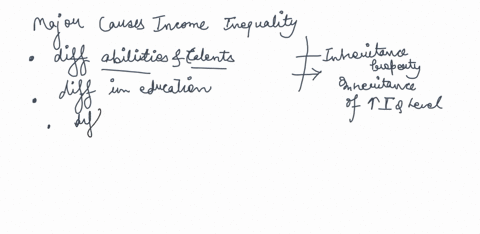 Major Causes Income Inequality
• diff abilities & talents
• diff in education
• dif
Inheritance
property
Inheritance
of ↑ IQ level